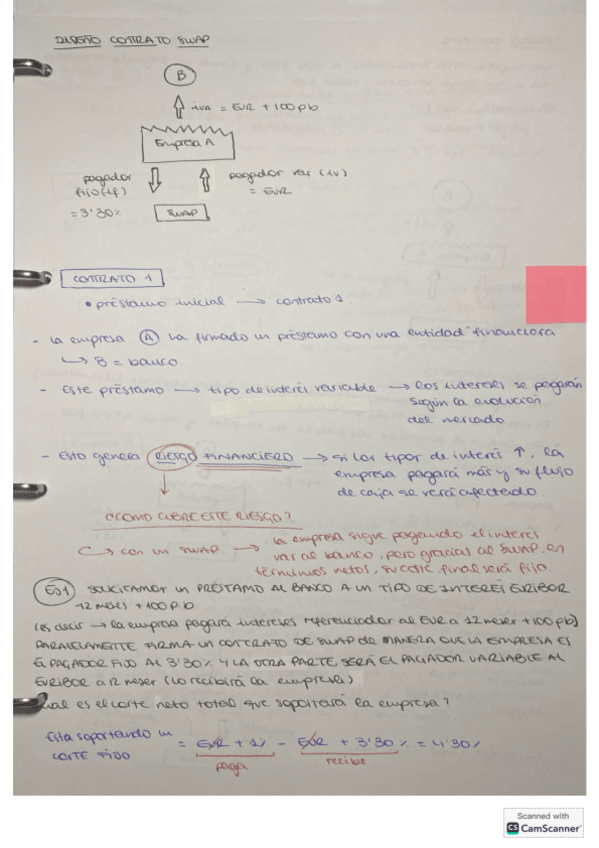 DISEÑO CONTRATO SWAP
B
iVA = EUR + 100pb
Empresa A
pagador fijo (if) = 3'30%
pagador var (iv) = EUR
SWAP
CONTRATO 1
• préstamo inicial → contrato 1
- La empresa A ha firmado un préstamo con una entidad financiera
↳ B = banco.
- Este préstamo → tipo de interés variable → los intereses se pagarán
según la evolución
del mercado
- Esto genera RIESGO FINANCIERO → si los tipos de interés ↑, la
empresa pagará más y su flujo
de caja se verá afectado.
¿CÓMO CUBRE ESTE RIESGO?
→ con un SWAP → la empresa sigue pagando el interés
var al banco, pero gracias al SWAP, en
términos netos, su coste final será fijo.
EJ1 SOLICITAMOS UN PRÉSTAMO AL BANCO A UN TIPO DE INTERÉS EURIBOR
12 MESES + 100 P.b
(es decir → la empresa pagará intereses referenciados al EUR a 12 meses + 100 pb)
PARALELAMENTE FIRMA UN CONTRATO DE SWAP de MANERA QUE LA EMPRESA ES
EL PAGADOR FIJO AL 3'30% Y LA OTRA PARTE SERÁ EL PAGADOR VARIABLE AL
EURIBOR a 12 meses (lo recibirá la empresa)
¿Cual es el coste neto total que soportará la empresa?
Esta soportando un COSTE FIJO = EUR + 1% - EUR + 3'30% = 4'30%
paga recibe
Scanned with
CS CamScanner